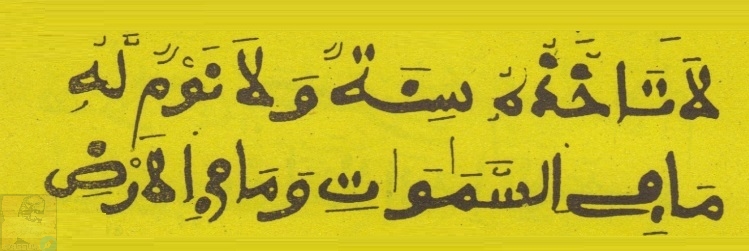 لَا تَاخُذُهُۥ سِنَةٌ وَلَا نَوْمٌ لَّهُۥ
مَا فِے السَّمَٰوَٰتِ وَمَا فِے اِلَارْضِ